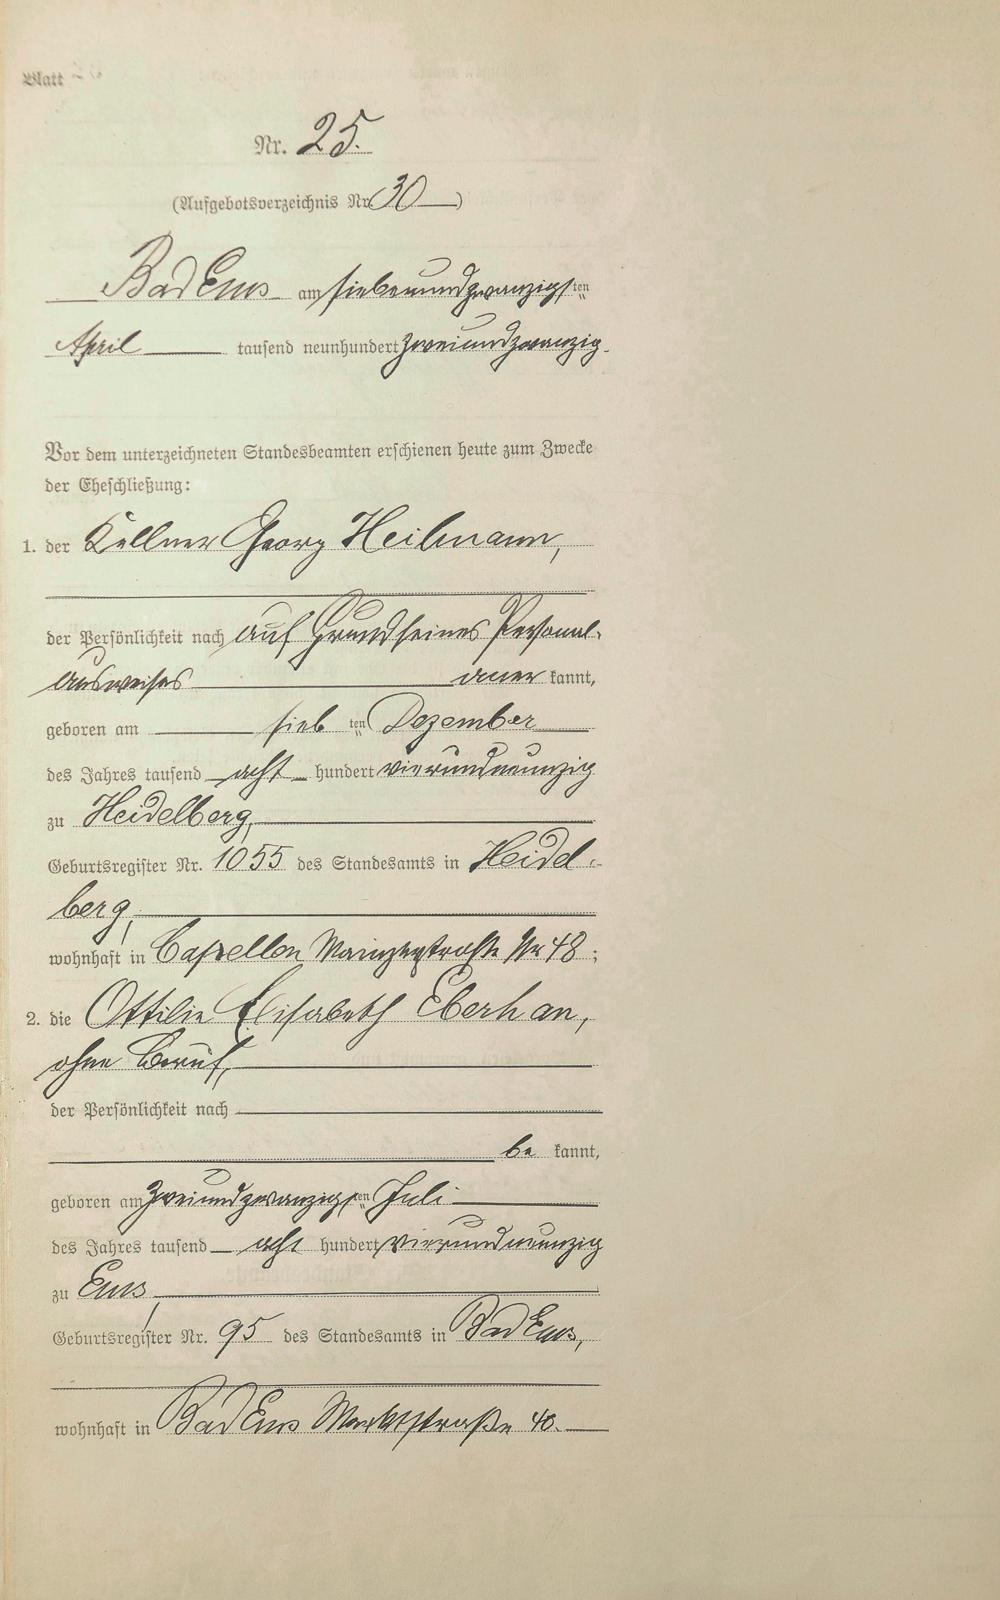 Blatt
Nr. 25.
(Aufgebotsverzeichnis Nr 30)
Bad Ems am siebenundzwanzigsten
April tausend neunhundert zweiundzwanzig.
Vor dem unterzeichneten Standesbeamten erschienen heute zum Zwecke
der Eheschließung:
1. der Kellner Georg Heilmann,
der Persönlichkeit nach auf Grund seines Personal-
ausweises aner kannt,
geboren am sieb ten Dezember
des Jahres tausend acht hundert vierundneunzig
zu Heidelberg,
Geburtsregister Nr. 1055 des Standesamts in Heidel-
berg,
wohnhaft in Capellen Mainzerstraße Nr 48;
2. die Ottilie Elisabeth Eberhan,
ohne Beruf,
der Persönlichkeit nach
be kannt,
geboren am zweiundzwanzigsten Juli
des Jahres tausend acht hundert vierundneunzig
zu Ems,
Geburtsregister Nr. 95 des Standesamts in Bad Ems,
wohnhaft in Bad Ems Marktstraße 40.